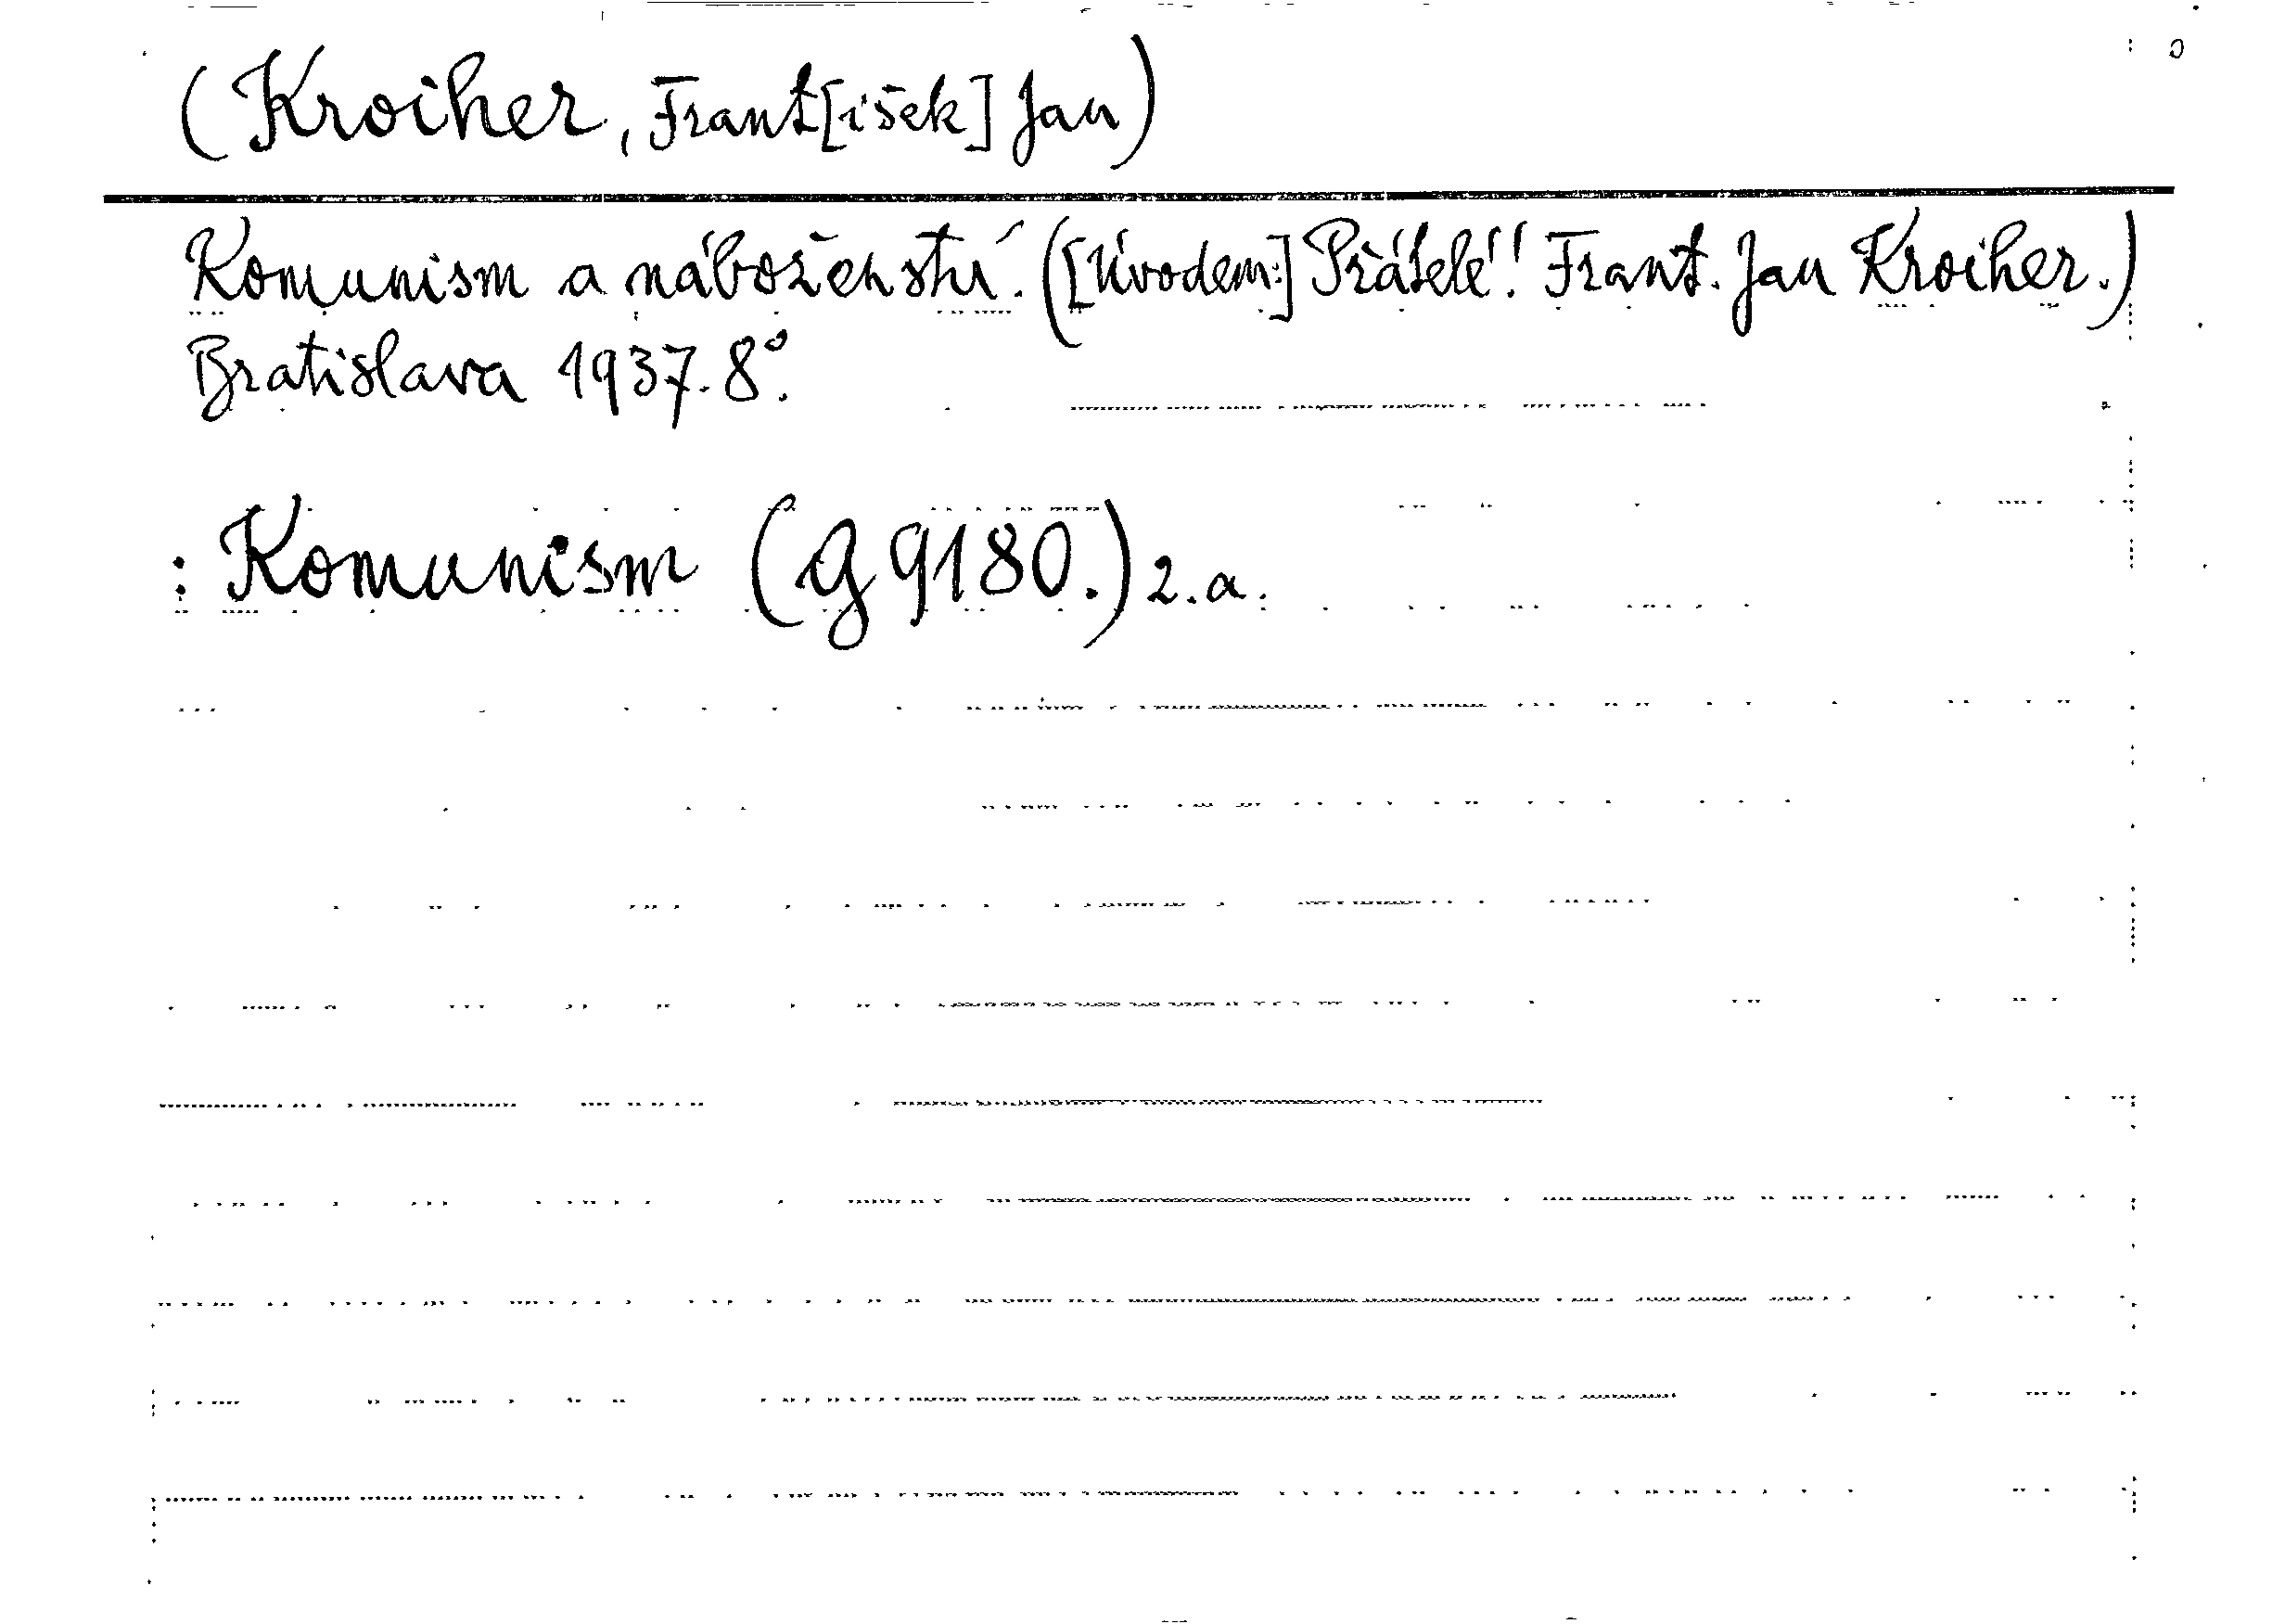 (Kroiher, Frant[išek] Jan)
Komunism a náboženství. ([Úvodem:] Přátelé! Frant. Jan Kroiher.)
Bratislava 1937. 8°.
: Komunism (G 9180.) 2.a.